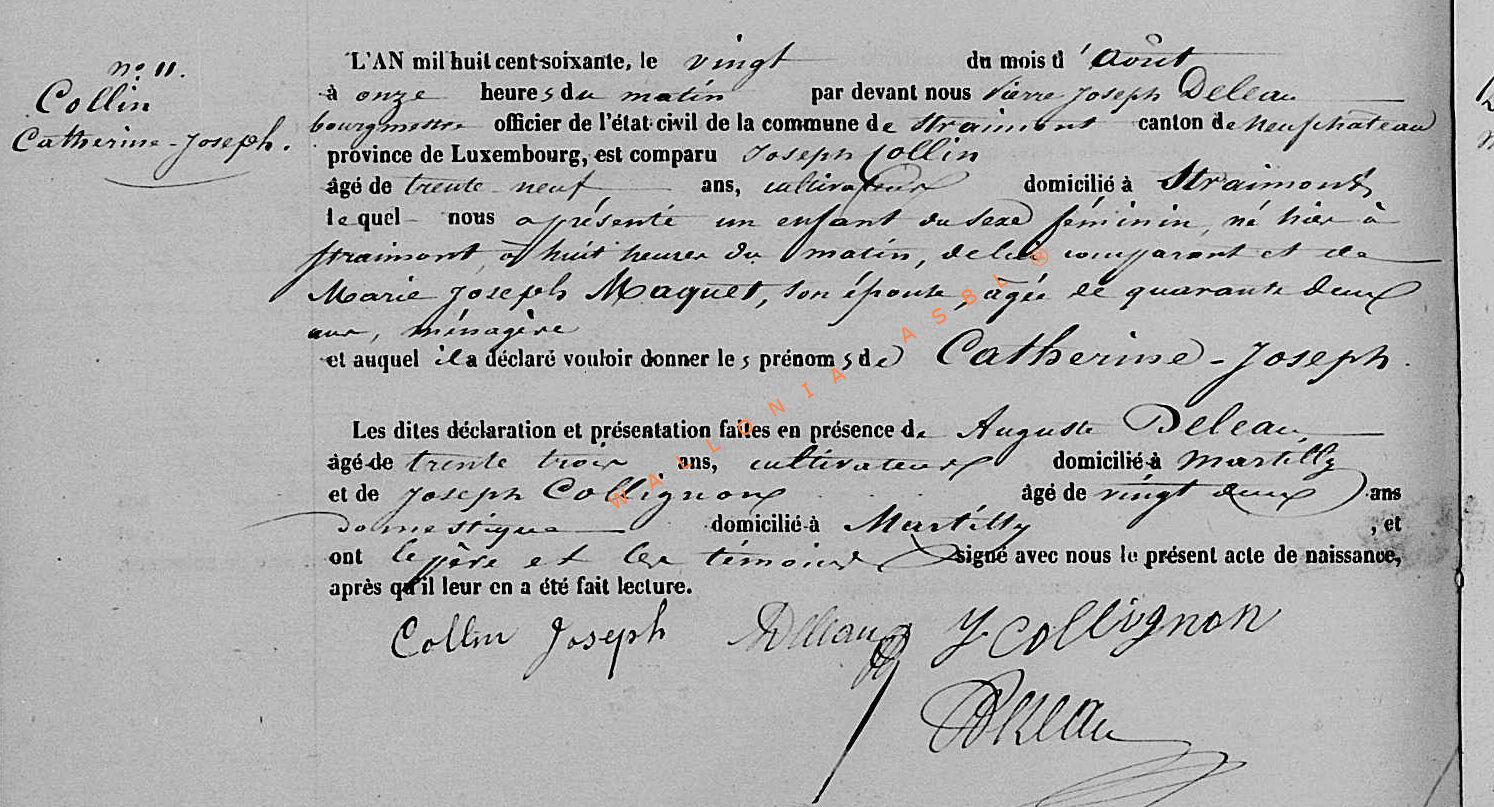 n° 11.
Collin
Catherine-Joseph.
L'AN mil huit cent soixante, le vingt du mois d'Août
à onze heures du matin par devant nous Pierre Joseph Deleau
bourgmestre officier de l'état civil de la commune de Straimont canton de Neufchateau
province de Luxembourg, est comparu Joseph Collin
âgé de trente-neuf ans, cultivateur domicilié à Straimont,
lequel nous a présenté un enfant du sexe féminin, né hier à
Straimont, à huit heures du matin, de lui comparant et de
Marie Joseph Maquet, son épouse, âgée de quarante deux
ans, ménagère
et auquel il a déclaré vouloir donner les prénoms de Catherine-Joseph.
Les dites déclaration et présentation faites en présence de Auguste Deleau
âgé de trente trois ans, cultivateur domicilié à Martilly
et de Joseph Collignon âgé de vingt deux ans
domestique domicilié à Martilly, et
ont le père et les témoins signé avec nous le présent acte de naissance,
après qu'il leur en a été fait lecture.
Collin Joseph ADeleau J Collignon
Deleau
WALLONIA ASBL ®